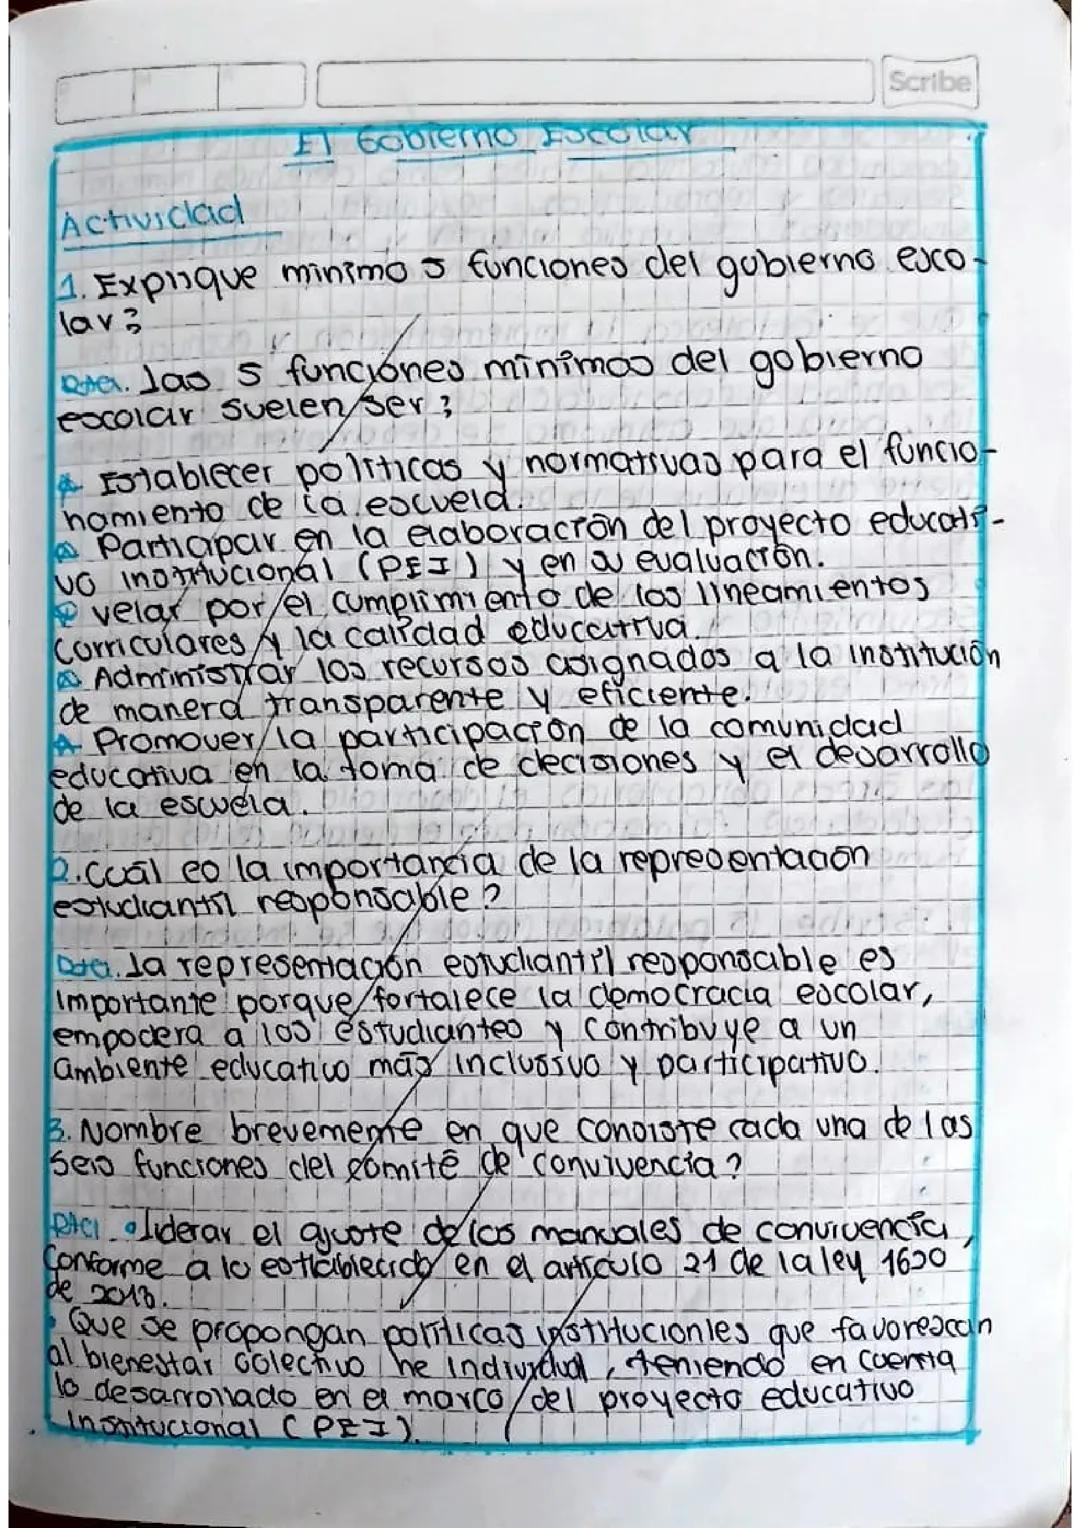 Scribe
El Gobierno Escolar
Actividad
1. Explique minimo 5 funciones del gobierno esco-
lar?
Rta. las 5 funciones minimas del gobierno
escolar suelen ser:
Establecer politicas y normativas para el funcio-
namiento de la escuela.
Participar en la elaboración del proyecto educati-
vo institucional (PEI) y en su evaluación.
velar por el cumplimiento de los lineamientos
curriculares y la calidad educativa.
Administrar los recursos asignados a la institución
de manera transparente y eficiente.
Promover la participación de la comunidad
educativa en la toma de decisiones y el desarrollo
de la escuela.
2. Cuál es la importancia de la representación
estudiantil responsable?
Rta. la representación estudiantil responsable es
importante porque fortalece la democracia escolar,
empodera a los estudiantes y contribuye a un
ambiente educativo más inclusivo y participativo.
3. Nombre brevemente en que consiste cada una de las
seis funciones del comité de convivencia?
Rta. • liderar el ajuste de los manuales de convivencia,
Conforme a lo establecido en el artículo 21 de la ley 1620
de 2013.
• Que se propongan políticas institucionles que favorescan
al bienestar colectivo he individual, teniendo en cuenta
lo desarrollado en el marco del proyecto educativo
institucional (PEI).